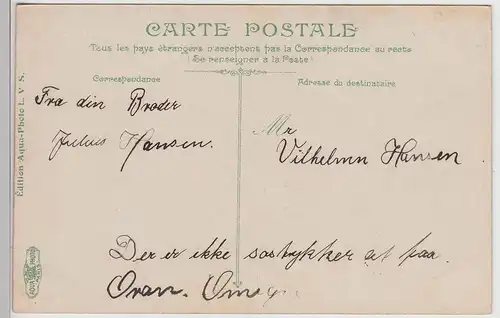 CARTE POSTALE
Tous les pays étrangers n'acceptent pas la Correspondance au recto
(Se renseigner a la Poste)
Correspondance
Adresse du destinataire
Fra din Broder
Julius Hansen.
Mr
Vilhelmn Hansen
Der er ikke at paa
Oran.
Edition Aqua-Photo L. V. S.